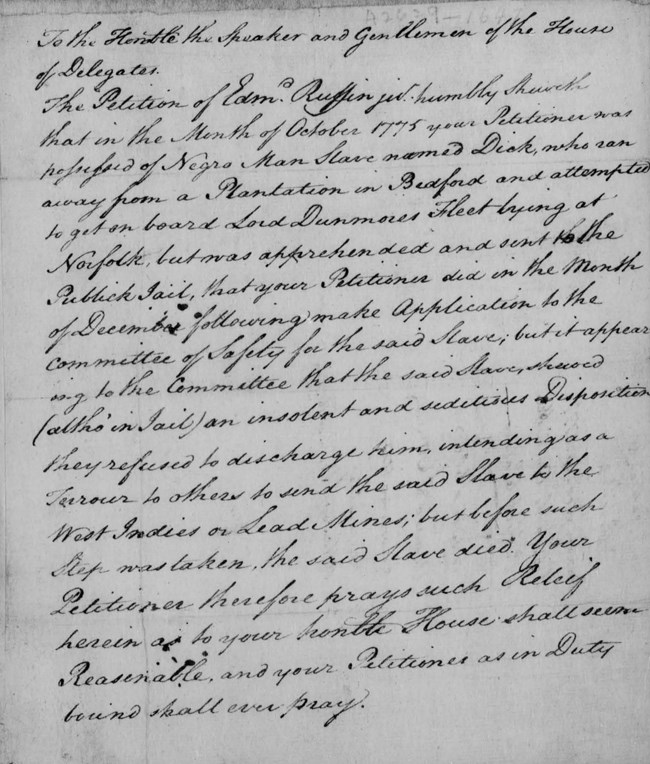 To the Honble the Speaker and Gentlemen of the House
of Delegates.
The Petition of Edmd. Ruffin junr. humbly sheweth
that in the Month of October 1775 your Petitioner was
possessed of Negro Man Slave named Dick, who ran
away from a Plantation in Bedford and attempted
to get on board Lord Dunmores Fleet lying at
Norfolk, but was apprehended and sent to the
Publick Jail, that your Petitioner did in the Month
of December following make Application to the
committee of Safety for the said Slave; but it appear
ing to the Committee that the said Slave, shewed
(altho' in Jail) an insolent and seditious Disposition
they refused to discharge him, intending as a
Terrour to others to send the said Slave to the
West Indies or Lead Mines; but before such
Step was taken, the said Slave died. Your
Petitioner therefore prays such Releif
herein as to your honble House shall seem
Reasonable, and your Petitioner as in Duty
bound shall ever pray.